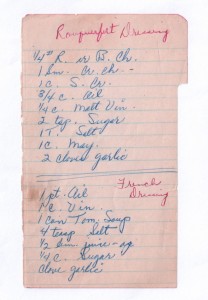 Roquefort Dressing
1/4# R. or B. Ch.
1 lrn. Cr. ch. -
1 c. S. Cr.
3/4 c. Oil
1/4 c. Malt Vin.
2 tsp. Sugar
1 T. Salt
1 c. May.
2 cloves garlic
French
Dressing
1 pt. Oil
1 c. Vin.
1 can Tom. Soup
4 teasp Salt
1/2 lrn juice - og
1/4 c. Sugar
clove garlic